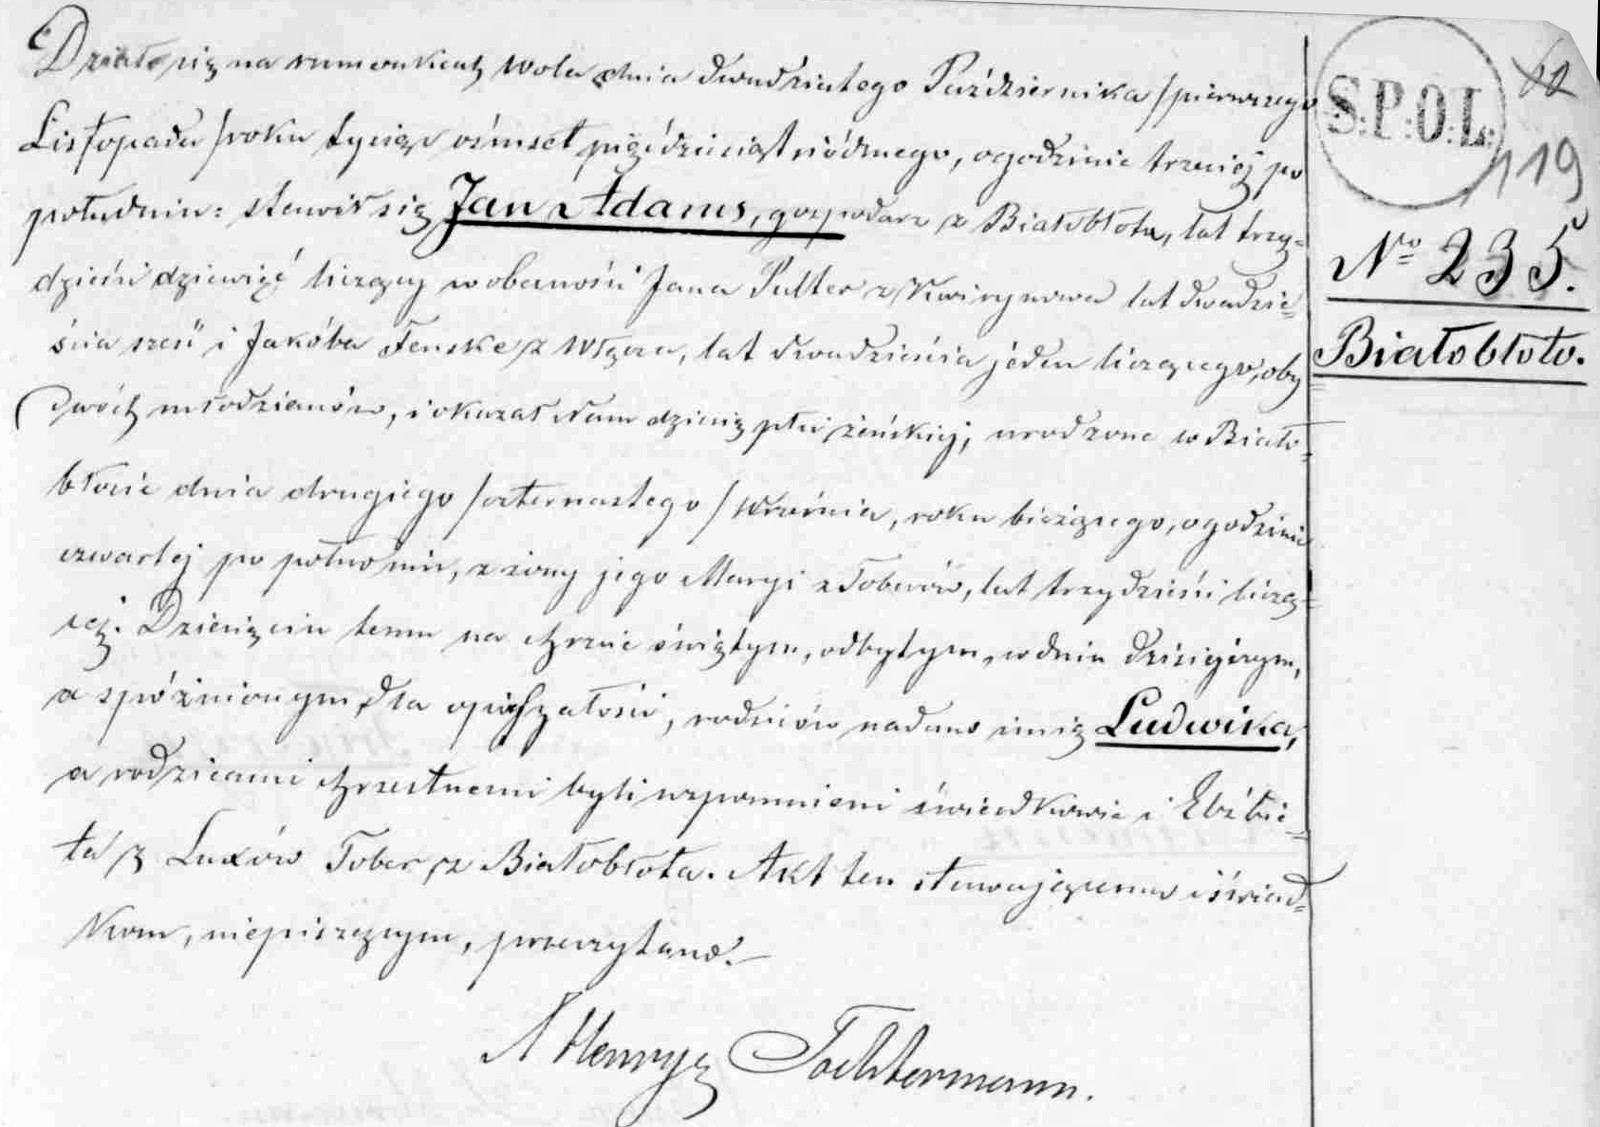 Działo się na rumunkach Wola dnia dwudziestego Października /pierwszego
Listopada/ roku tysiąc ośmset pięćdziesiąt siódmego, o godzinie trzeciej po
południu: stawił się Jan Adams, gospodarz z Białobłota, lat trzy=
dzieści dziewięć liczący w obecności Jana Pulter z Kwirynowa lat dwadzie=
ścia sześć i Jakóba Fenske z Więzca, lat dwadzieścia jeden liczącego, oby
dwóch młodzianów, i okazał Nam dziecię płci żeńskiej, urodzone w Biało=
błocie dnia drugiego /czternastego/ Września, roku bieżącego, o godzinie
czwartej po południu, z żony jego Maryi z Toberów, lat trzydzieści liczą=
cej. Dziecięciu temu na chrzcie świętym, odbytym w dniu dzisiejszym,
a spóźnionym dla opieszałości, rodziców nadano imię Ludwika,
a rodzicami chrzestnemi byli wspomnieni świadkowie i Elżbie=
ta z Luxów Tober z Białobłota. Akt ten stawającemu i świad=
kom, niepiszącym, przeczytano.
X Henryk Tochtermann.
S:P:O:L:
119
No 235.
Białobłoto.